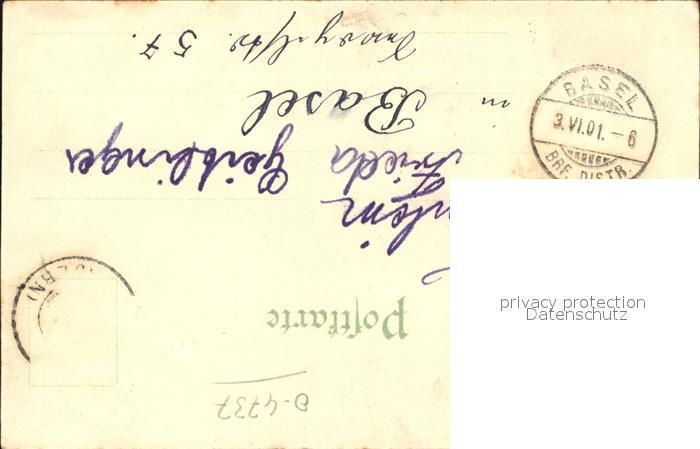 Postkarte
Frieda Geiblinger
in Basel
57.
BASEL
3.VI.01.-6
BRF. DISTR.
D-4737
privacy protection
Datenschutz